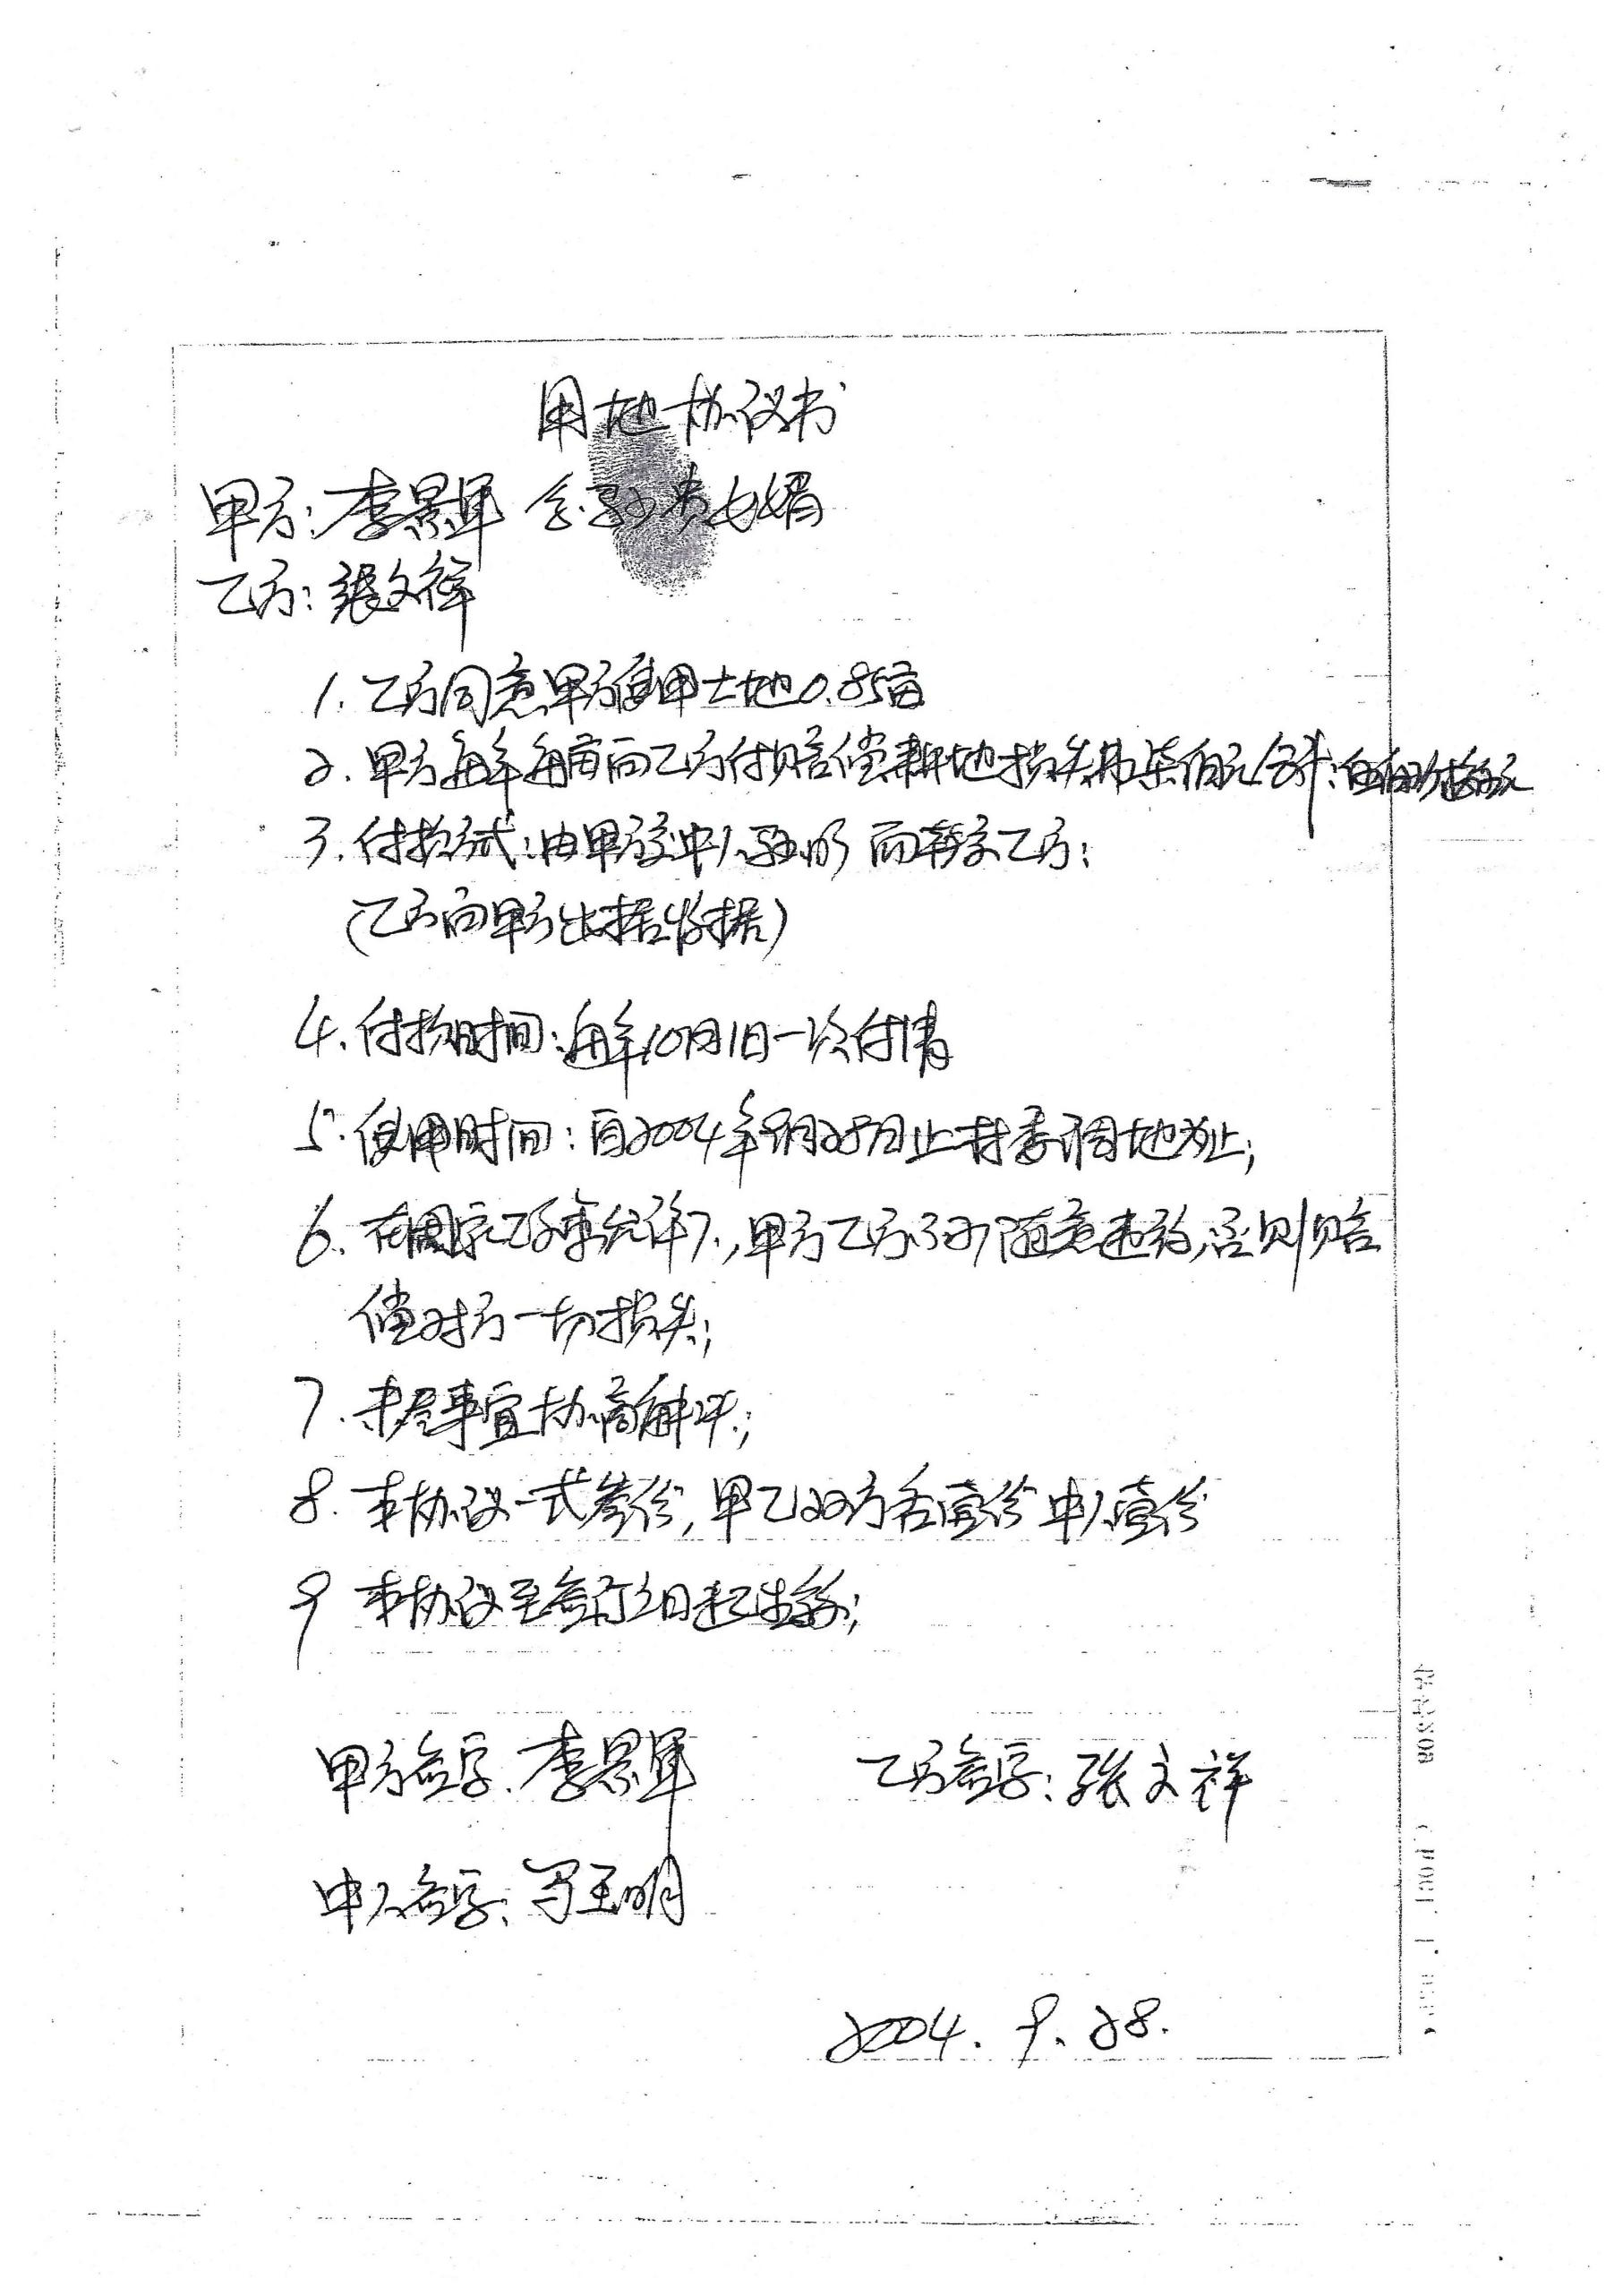 用地协议书
甲方:李景军 贵女婿
乙方:張文祥
1. 乙方同意甲方使用土地0.85亩
2. 甲方每年每亩向乙方付赔偿耕地损失共柒佰元 合计:
3. 付款方式:由甲方交中人 而转交乙方:
(乙方向甲方出据收据)
4. 付款时间:每年10月1日一次付清
5. 使用时间:自2004年9月28日止村委调地为止;
6. 在国家政策允许下,甲方乙方不可随意违约,否则赔
偿对方一切损失;
7. 未尽事宜协商解决;
8. 本协议一式叁份,甲乙双方各壹份 中人壹份
9 本协议至签订之日起生效;
甲方签字.李景军 乙方签字:张文祥
中人签字:玉明
2004. 9. 28.